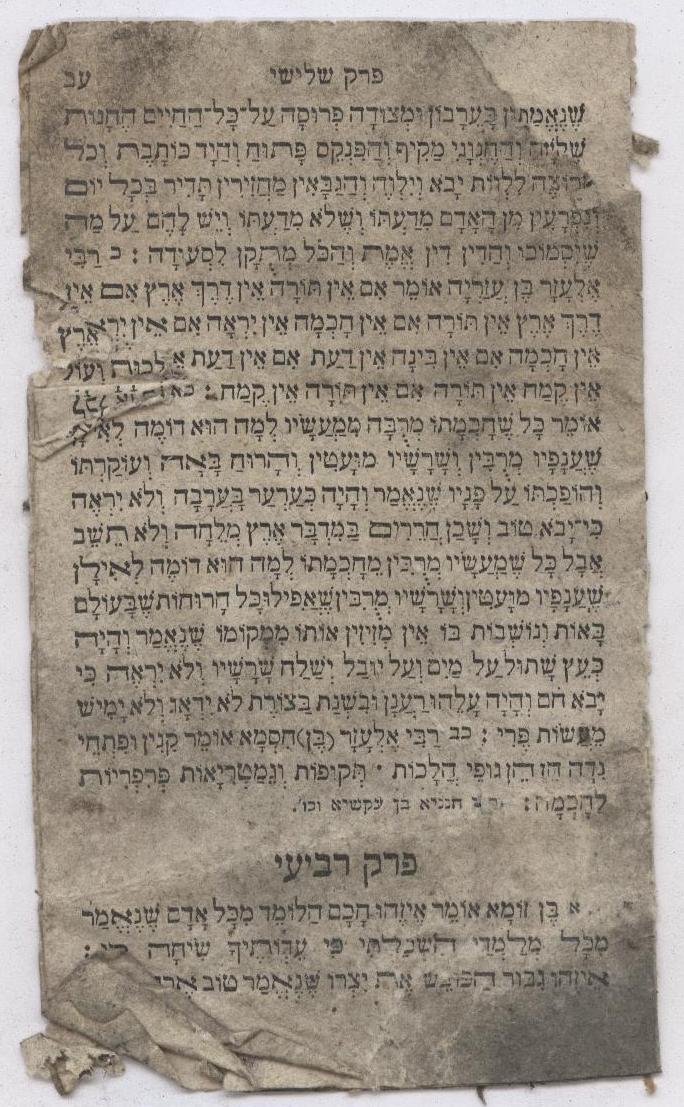 פרק שלישי עב
בָּעֵרָבוֹן וּמְצוּדָה פְרוּסָה עַל־כָּל־הַחַיִּים הֶחָנוּת
וְהַחֶנְוָנִי מַקִּיף וְהַפִּנְקָס פָּתוּחַ וְהַיָּד כּוֹתֶבֶת וְכֹל
לִלְווֹת יָבֹא וְיִלְוֶה וְהַגַּבָּאִין מַחֲזִירִין תָּדִיר בְּכָל יוֹם
וְנִפְרָעִין מִן הָאָדָם מִדַּעְתּוֹ וְשֶׁלֹּא מִדַּעְתּוֹ וְיֵשׁ לָהֶם עַל מַה
וְהַדִּין דִּין אֱמֶת וְהַכֹּל מְתֻקָּן לִסְעֻדָּה׃ כ רַבִּי
אֶלְעָזָר בֶּן עֲזַרְיָה אוֹמֵר אִם אֵין תּוֹרָה אֵין דֶּרֶךְ אֶרֶץ אִם אֵין
דֶּרֶךְ אֶרֶץ אֵין תּוֹרָה אִם אֵין חָכְמָה אֵין יִרְאָה אִם אֵין
אֵין חָכְמָה אִם אֵין בִּינָה אֵין דַּעַת אִם אֵין דַּעַת
אֵין קֶמַח אֵין תּוֹרָה אִם אֵין תּוֹרָה אֵין קֶמַח׃
אוֹמֵר כָּל שֶׁחָכְמָתוֹ מְרֻבָּה מִמַּעֲשָׂיו לְמָה הוּא דוֹמֶה
שֶׁעֲנָפָיו מְרֻבִּין וְשָׁרָשָׁיו מוּעָטִין וְהָרוּחַ בָּאָה וְעוֹקַרְתּוֹ
וְהוֹפַכְתּוֹ עַל פָּנָיו שֶׁנֶּאֱמַר וְהָיָה כְּעַרְעָר בָּעֲרָבָה וְלֹא יִרְאֶה
כִּי־יָבֹא טוֹב וְשָׁכַן חֲרֵרִים בַּמִּדְבָּר אֶרֶץ מְלֵחָה וְלֹא תֵשֵׁב
אֲבָל כָּל שֶׁמַּעֲשָׂיו מְרֻבִּין מֵחָכְמָתוֹ לְמָה הוּא דוֹמֶה לְאִילָן
שֶׁעֲנָפָיו מוּעָטִין וְשָׁרָשָׁיו מְרֻבִּין שֶׁאֲפִילוּ כָּל הָרוּחוֹת שֶׁבָּעוֹלָם
בָּאוֹת וְנוֹשְׁבוֹת בּוֹ אֵין מְזִיזִין אוֹתוֹ מִמְּקוֹמוֹ שֶׁנֶּאֱמַר וְהָיָה
כְּעֵץ שָׁתוּל עַל מַיִם וְעַל יוּבַל יְשַׁלַּח שָׁרָשָׁיו וְלֹא יִרְאֶה כִּי
יָבֹא חֹם וְהָיָה עָלֵהוּ רַעֲנָן וּבִשְׁנַת בַּצּוֹרֶת לֹא יִדְאָג וְלֹא יָמִישׁ
מֵעֲשׂוֹת פְּרִי׃ כב רַבִּי אֶלְעָזָר (בֶּן) חִסְמָא אוֹמֵר קִנִּין וּפִתְחֵי
נִדָּה הֵן הֵן גּוּפֵי הֲלָכוֹת · תְּקוּפוֹת וְגִמַּטְרִיָּאוֹת פַּרְפְּרִיּוֹת
לַחָכְמָה׃ חנניא בן עקשיא וכו'.
פרק רביעי
א בֶּן זוֹמָא אוֹמֵר אֵיזֶהוּ חָכָם הַלּוֹמֵד מִכָּל אָדָם שֶׁנֶּאֱמַר
מִכָּל מְלַמְּדַי הִשְׂכַּלְתִּי כִּי עֵדְוֹתֶיךָ שִׂיחָה לִי׃
אֵיזֶהוּ גִבּוֹר הַכּוֹבֵשׁ אֶת יִצְרוֹ שֶׁנֶּאֱמַר טוֹב